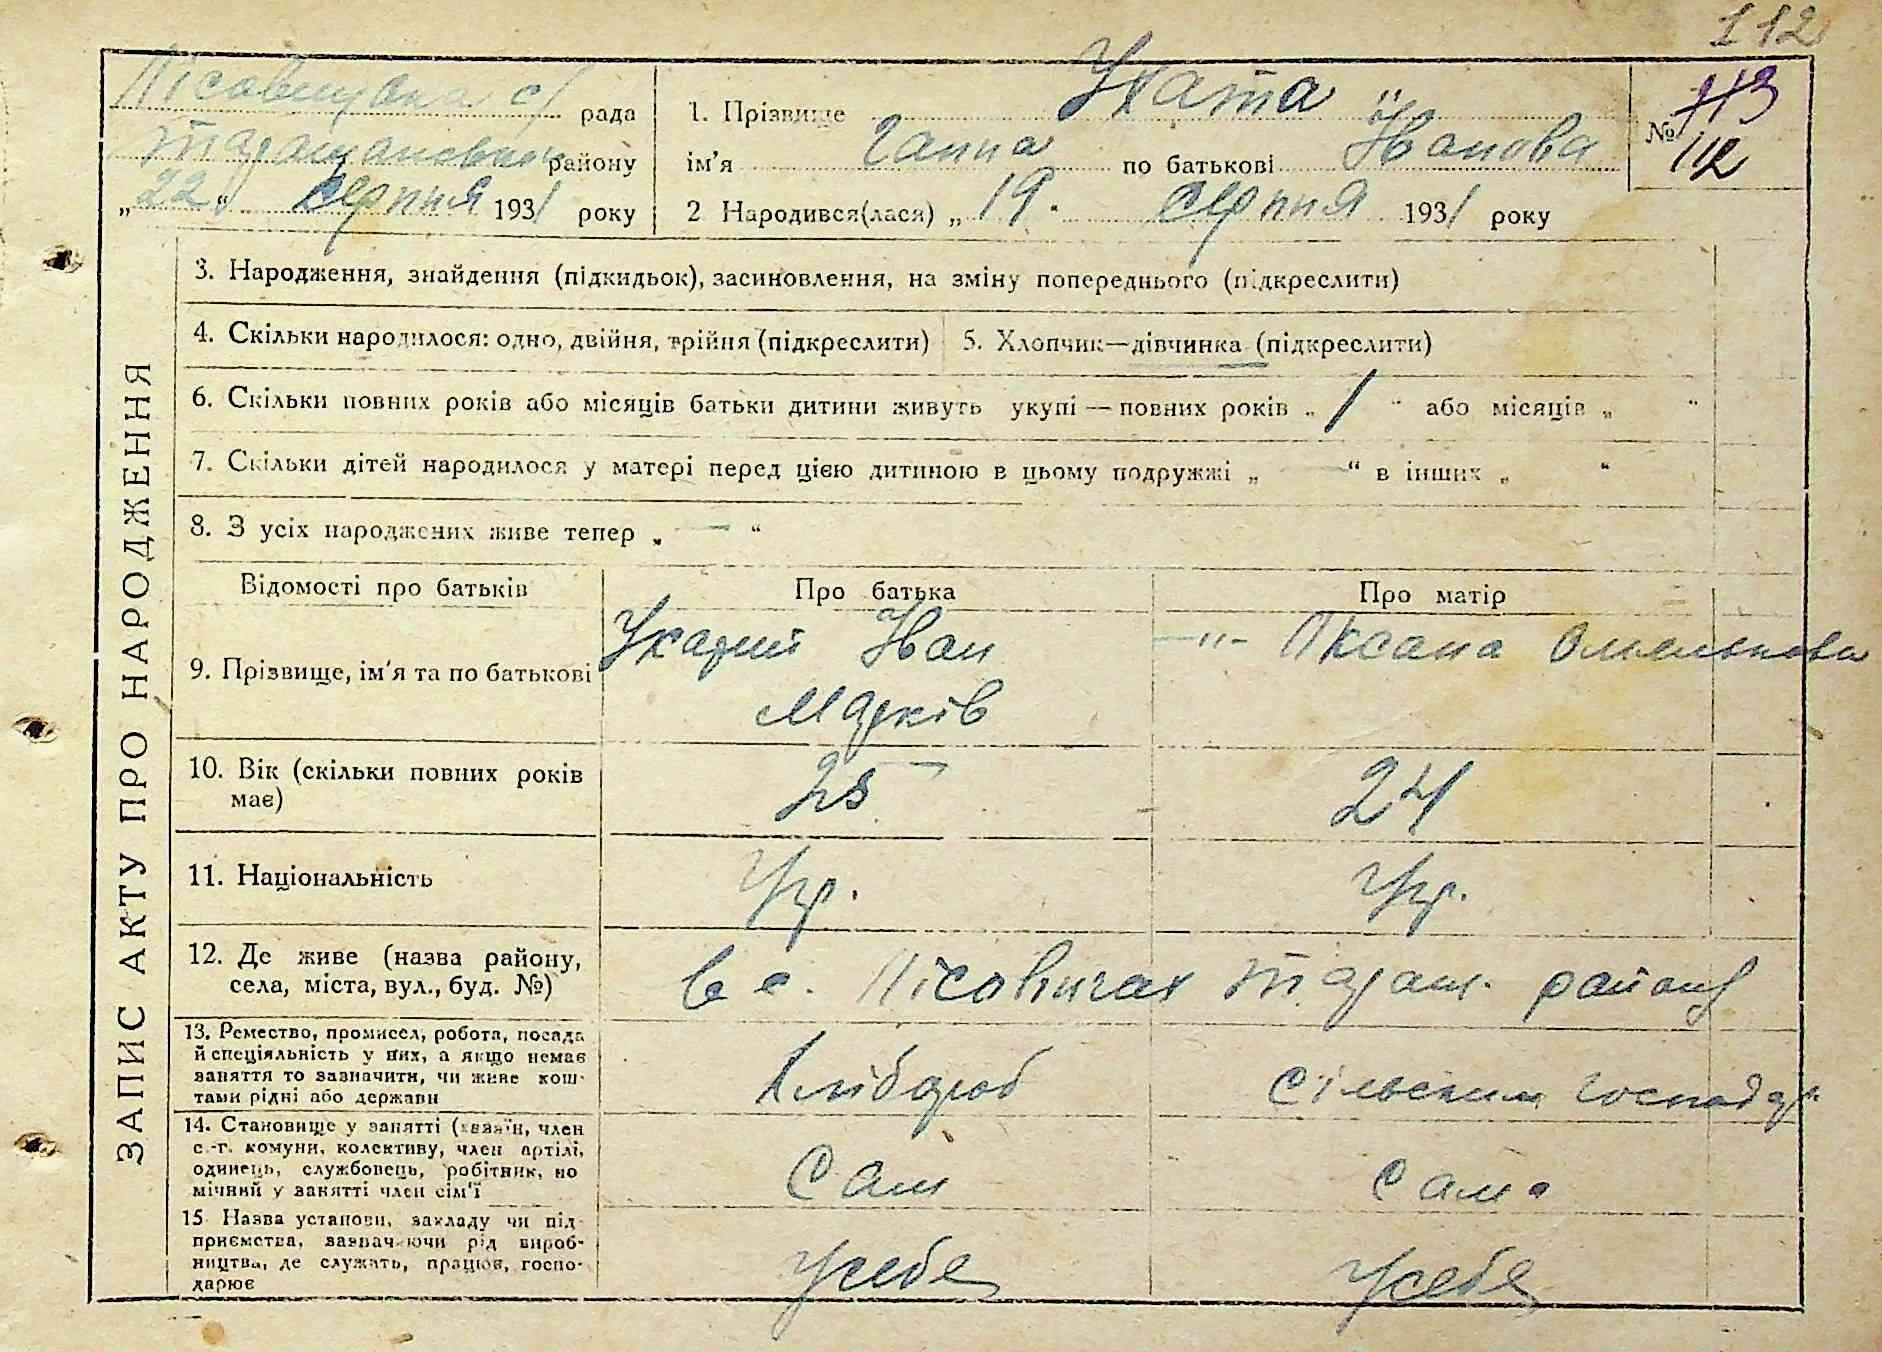 112
Лісовицька с/ рада
Таращанського району
„22“ серпня 1931 року
1. Прізвище
ім'я Ганна по батькові Іванова
2 Народився(лася) „19. серпня 1931 року
№ 113
112
ЗАПИС АКТУ ПРО НАРОДЖЕННЯ
3. Народження, знайдення (підкидьок), засиновлення, на зміну попереднього (підкреслити)
4. Скільки народилося: одно, двійня, трійня (підкреслити)
5. Хлопчик—дівчинка (підкреслити)
6. Скільки повних років або місяців батьки дитини живуть укупі — повних років „ 1 “ або місяців „ “
7. Скільки дітей народилося у матері перед цією дитиною в цьому подружжі „ — “ в інших „ “
8. З усіх народжених живе тепер „ — “
Відомості про батьків
Про батька
Про матір
9. Прізвище, ім'я та по батькові
Іван
Марків
—"— Оксана Омелькова
10. Вік (скільки повних років
має)
25
24
11. Національність
Укр.
Укр.
12. Де живе (назва району,
села, міста, вул., буд. №)
в с. Лісовичах Таращ. району
13. Ремество, промисел, робота, посада
й спеціяльність у них, а якщо немає
заняття то зазначити, чи живе кош-
тами рідні або держави
Хлібороб
Сільським господар.
14. Становище у занятті (хазяїн, член
с.-г. комуни, колективу, член артілі,
одинець, службовець, робітник, по
мічний у занятті член сім'ї
Сам
Сама
15 Назва установи, закладу чи під-
приємства, зазначаючи рід вироб-
ництва, де служать, працює, госпо-
дарює
У себе
У себе